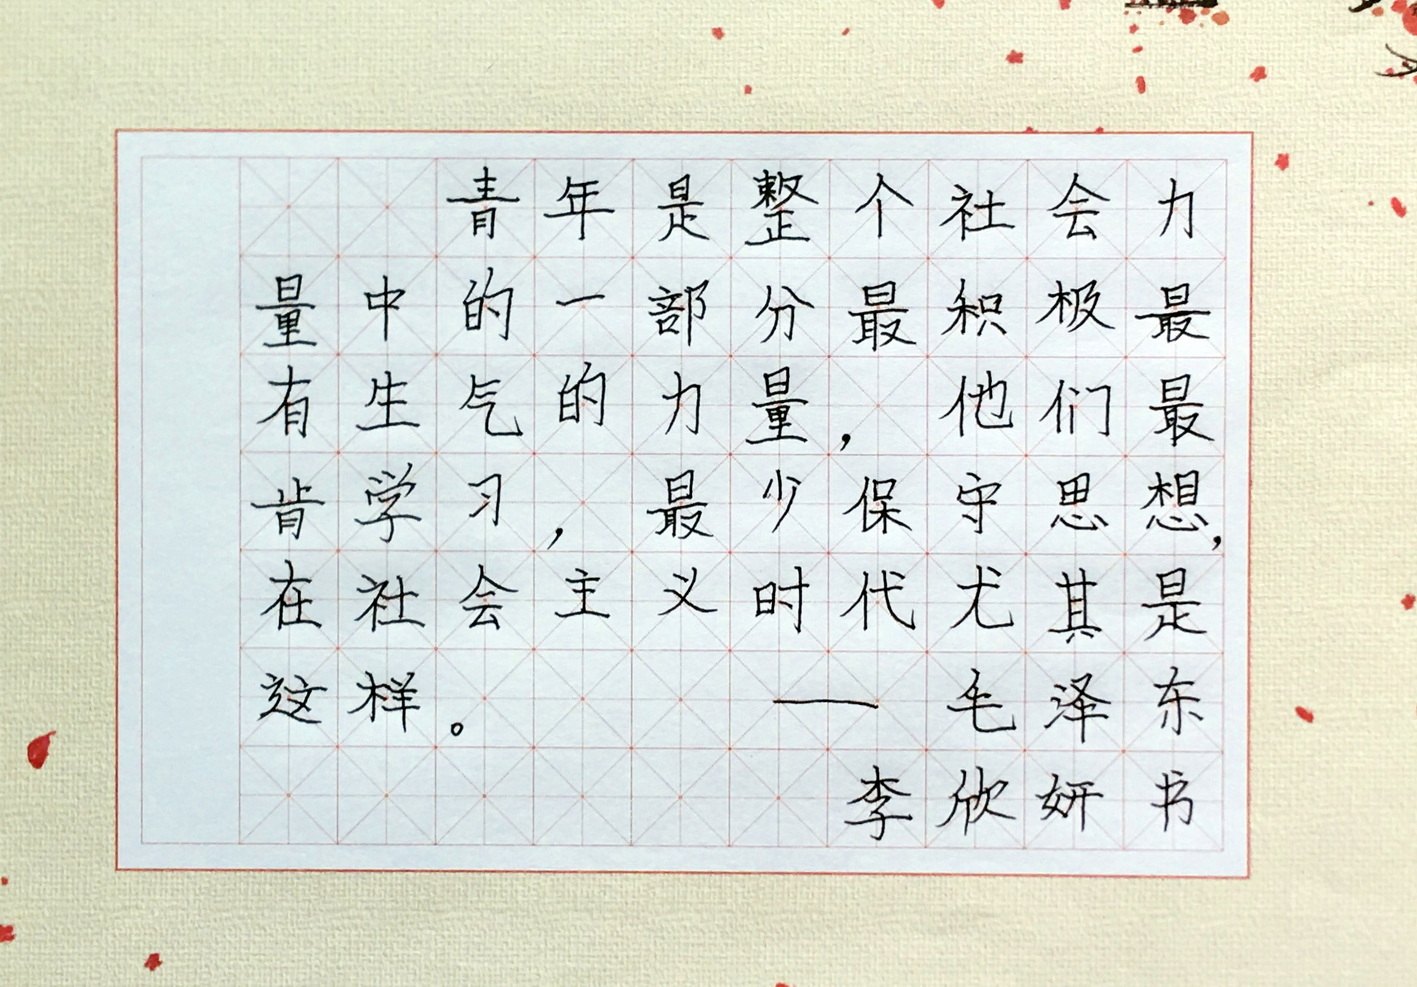 青年是整个社会力
量中的一部分最积极最
有生气的力量，他们最
肯学习，最少保守思想，
在社会主义时代尤其是
这样。——毛泽东
李欣妍书